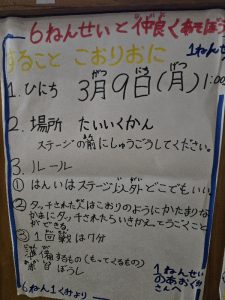 6ねんせいと仲良くあそぼう
1ねんせい
すること こおりおに
1. ひにち 3月9日(月)1:00
2. 場所 たいいくかん
ステージの前にしゅうごうしてください。
3. ルール
① はんいはステージ以外どこでもいい
② タッチされた人はこおりのようにかたまりなかまにタッチされたらいきかえってうごくこと
ができる。
③ 1回戦は7分
準備するもの(もってくるもの)
赤白ぼうし
6ねん1くみより
1ねんせい
のあおぐみ
さんへ